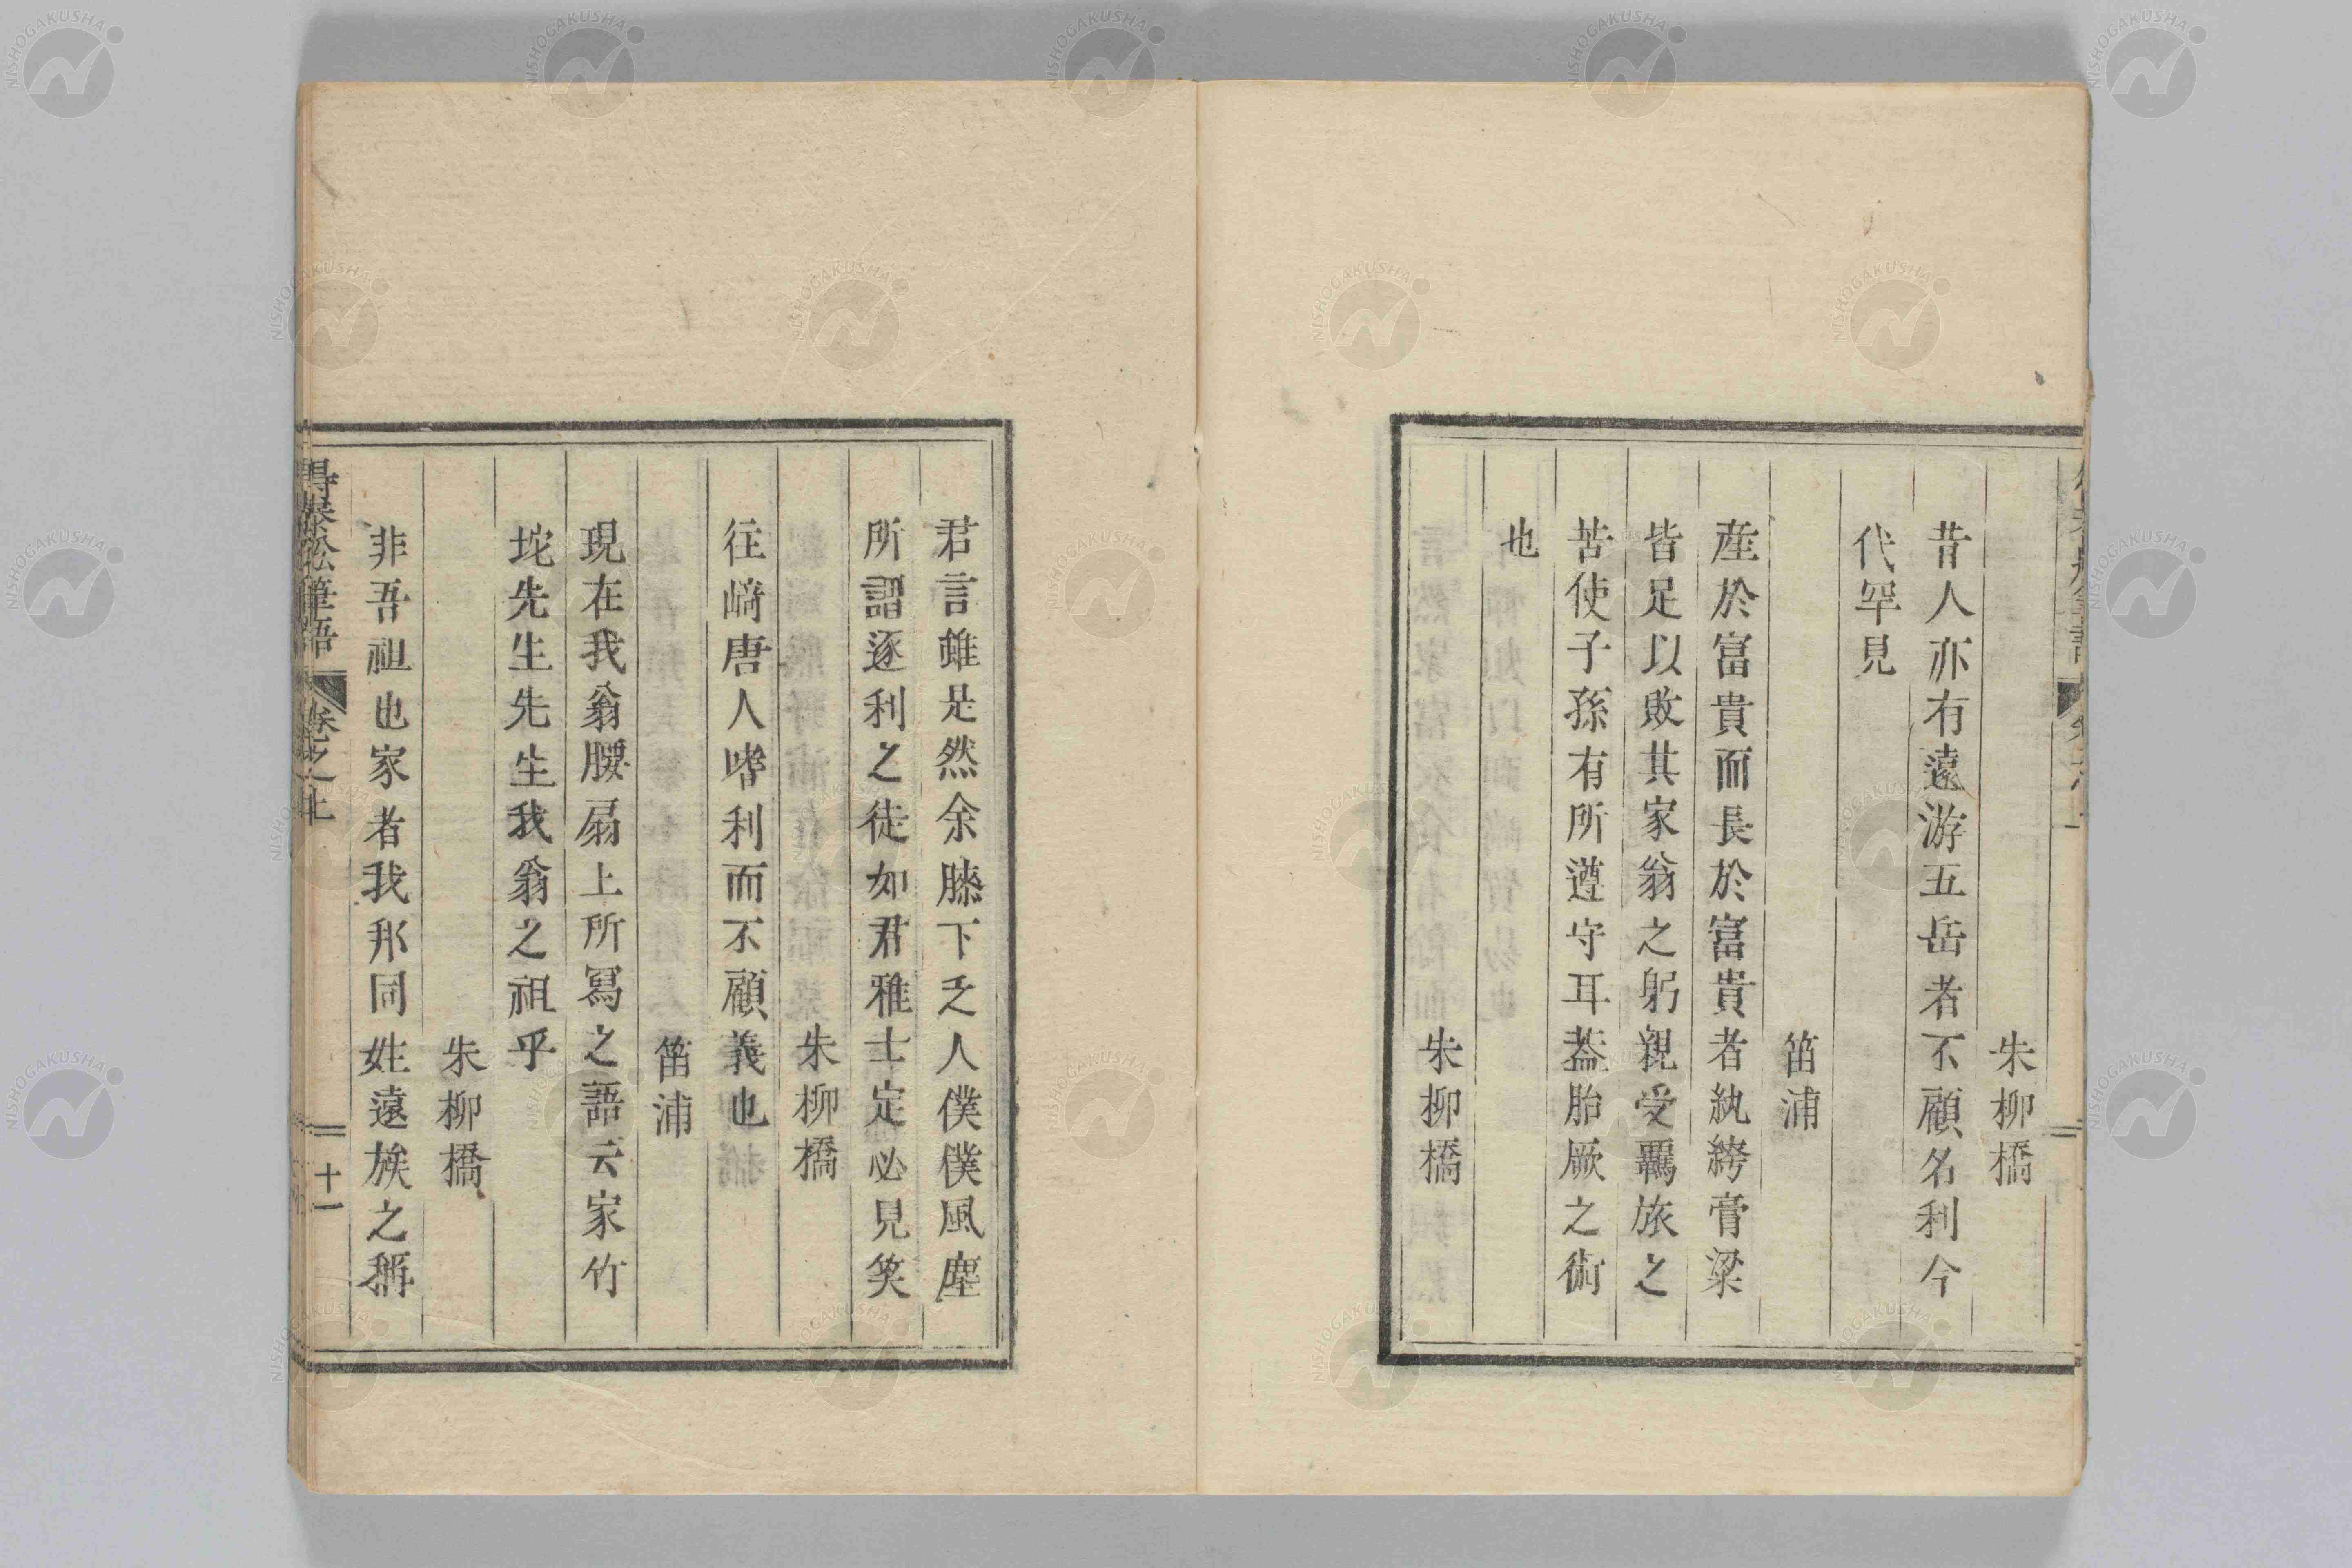 朱柳橋
昔人亦有遠游五岳者不顧名利今
代罕見
笛浦
産於富貴而長於富貴者紈綺膏粱
皆足以敗其家翁之躬親受羈旅之
苦使子孫有所遵守耳葢胎厥之術
也
朱柳橋
君言雖是然余膝下乏人僕僕風塵
所謂逐利之徒如君雅士定必見笑
朱柳橋
往崎唐人嗜利而不顧義也
笛浦
現在我翁腰扇上所寫之語云家竹
坨先生先生我翁之祖乎
朱柳橋
非吾祖也家者我邦同姓遠族之稱
得泰舩筆語 卷之上 十一
NISHOGAKUSHA